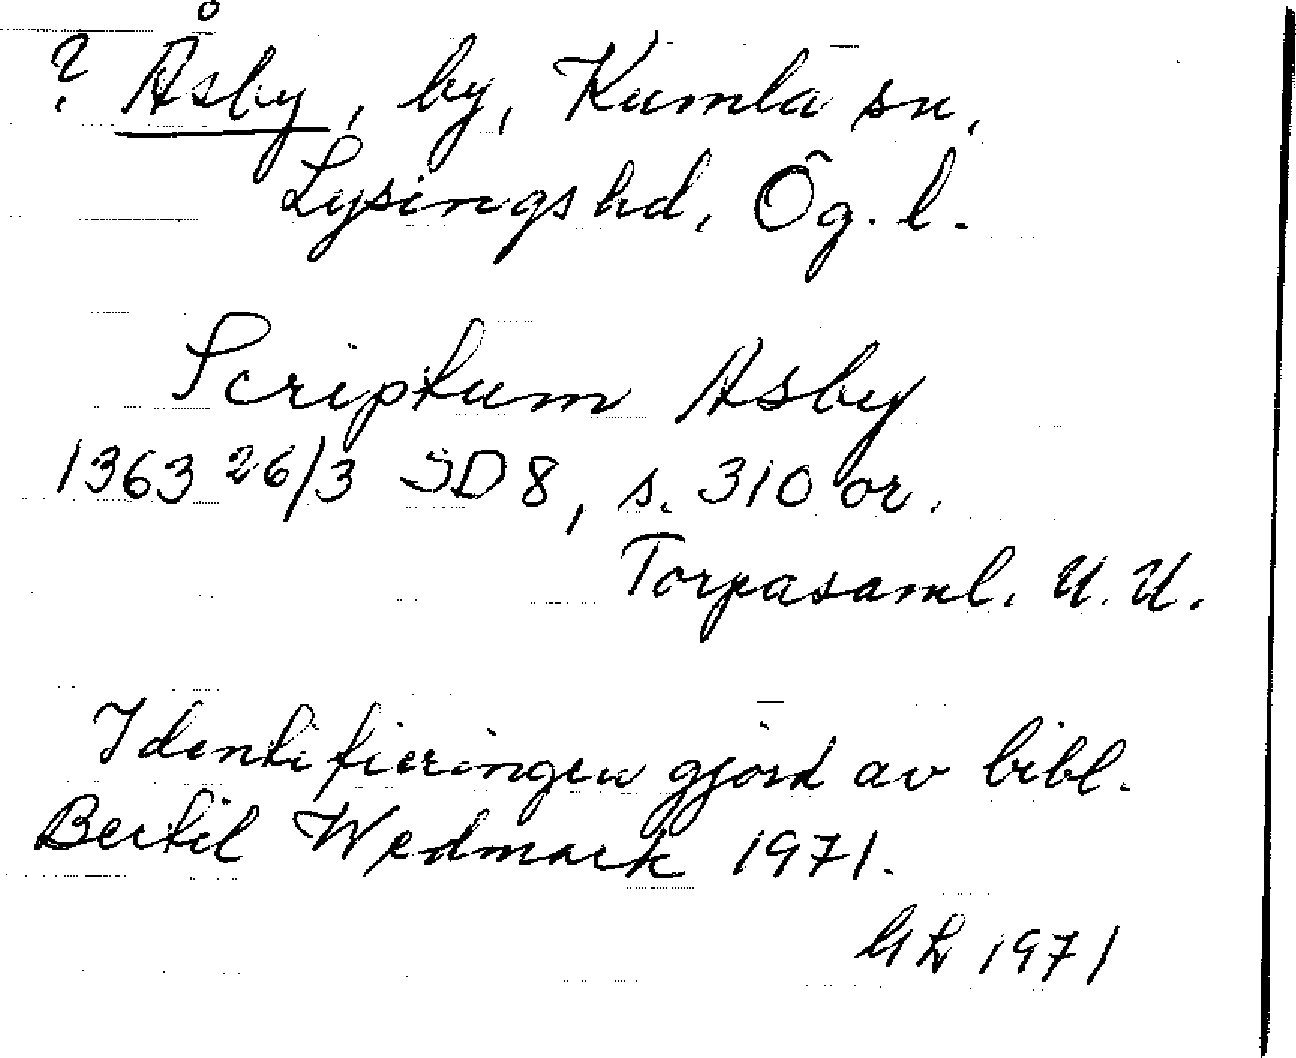 ? Åsby, by, Kumla sn,
Lysings hd, Ög. l.
Scriptum Asby
1363 26/3 SD 8, s. 310 or.
Torpasaml. U. U.
Identifieringen gjord av bibl.
Bertil Wedmark 1971.
1971